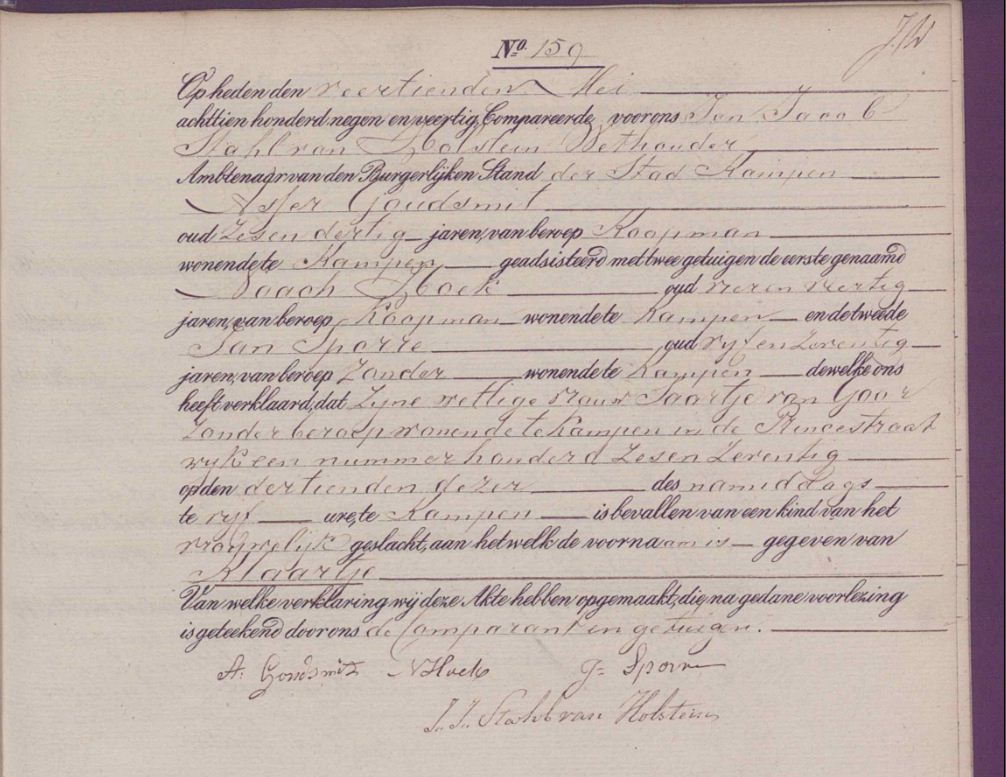 No. 159
Op heden den veertienden Mei
achttien honderd negen en veertig, Compareerde, voor ons Jan Jacob
Stahl van Holstein Wethouder
Ambtenaar van den Burgerlijken Stand der Stad Kampen
Asser Goudsmit
oud Zesendertig jaren, van beroep Koopman
wonende te Kampen geadsisteerd met twee getuigen de eerste genaamd
Noach Hoek oud vierenveertig
jaren, van beroep Koopman wonende te Kampen en de tweede
Jan Sporre oud vijfenzeventig
jaren, van beroep Zonder wonende te Kampen dewelke ons
heeft verklaard, dat Zijne wettige vrouw Saartje van Goor
Zonder beroep wonende te Kampen in de Princestraat
wijk een nummer honderd Zesen Zeventig
op den dertienden dezer des namiddags
te vijf ure, te Kampen is bevallen van een kind van het
vrouwelijk geslacht, aan hetwelk de voornaam is gegeven van
Klaartje
Van welke verklaring wij deze Akte hebben opgemaakt, die, na gedane voorlezing
is geteekend door ons de Comparant en getuigen.
A. Goudsmit N Hoek J. Sporre
J. J. Stahl van Holstein